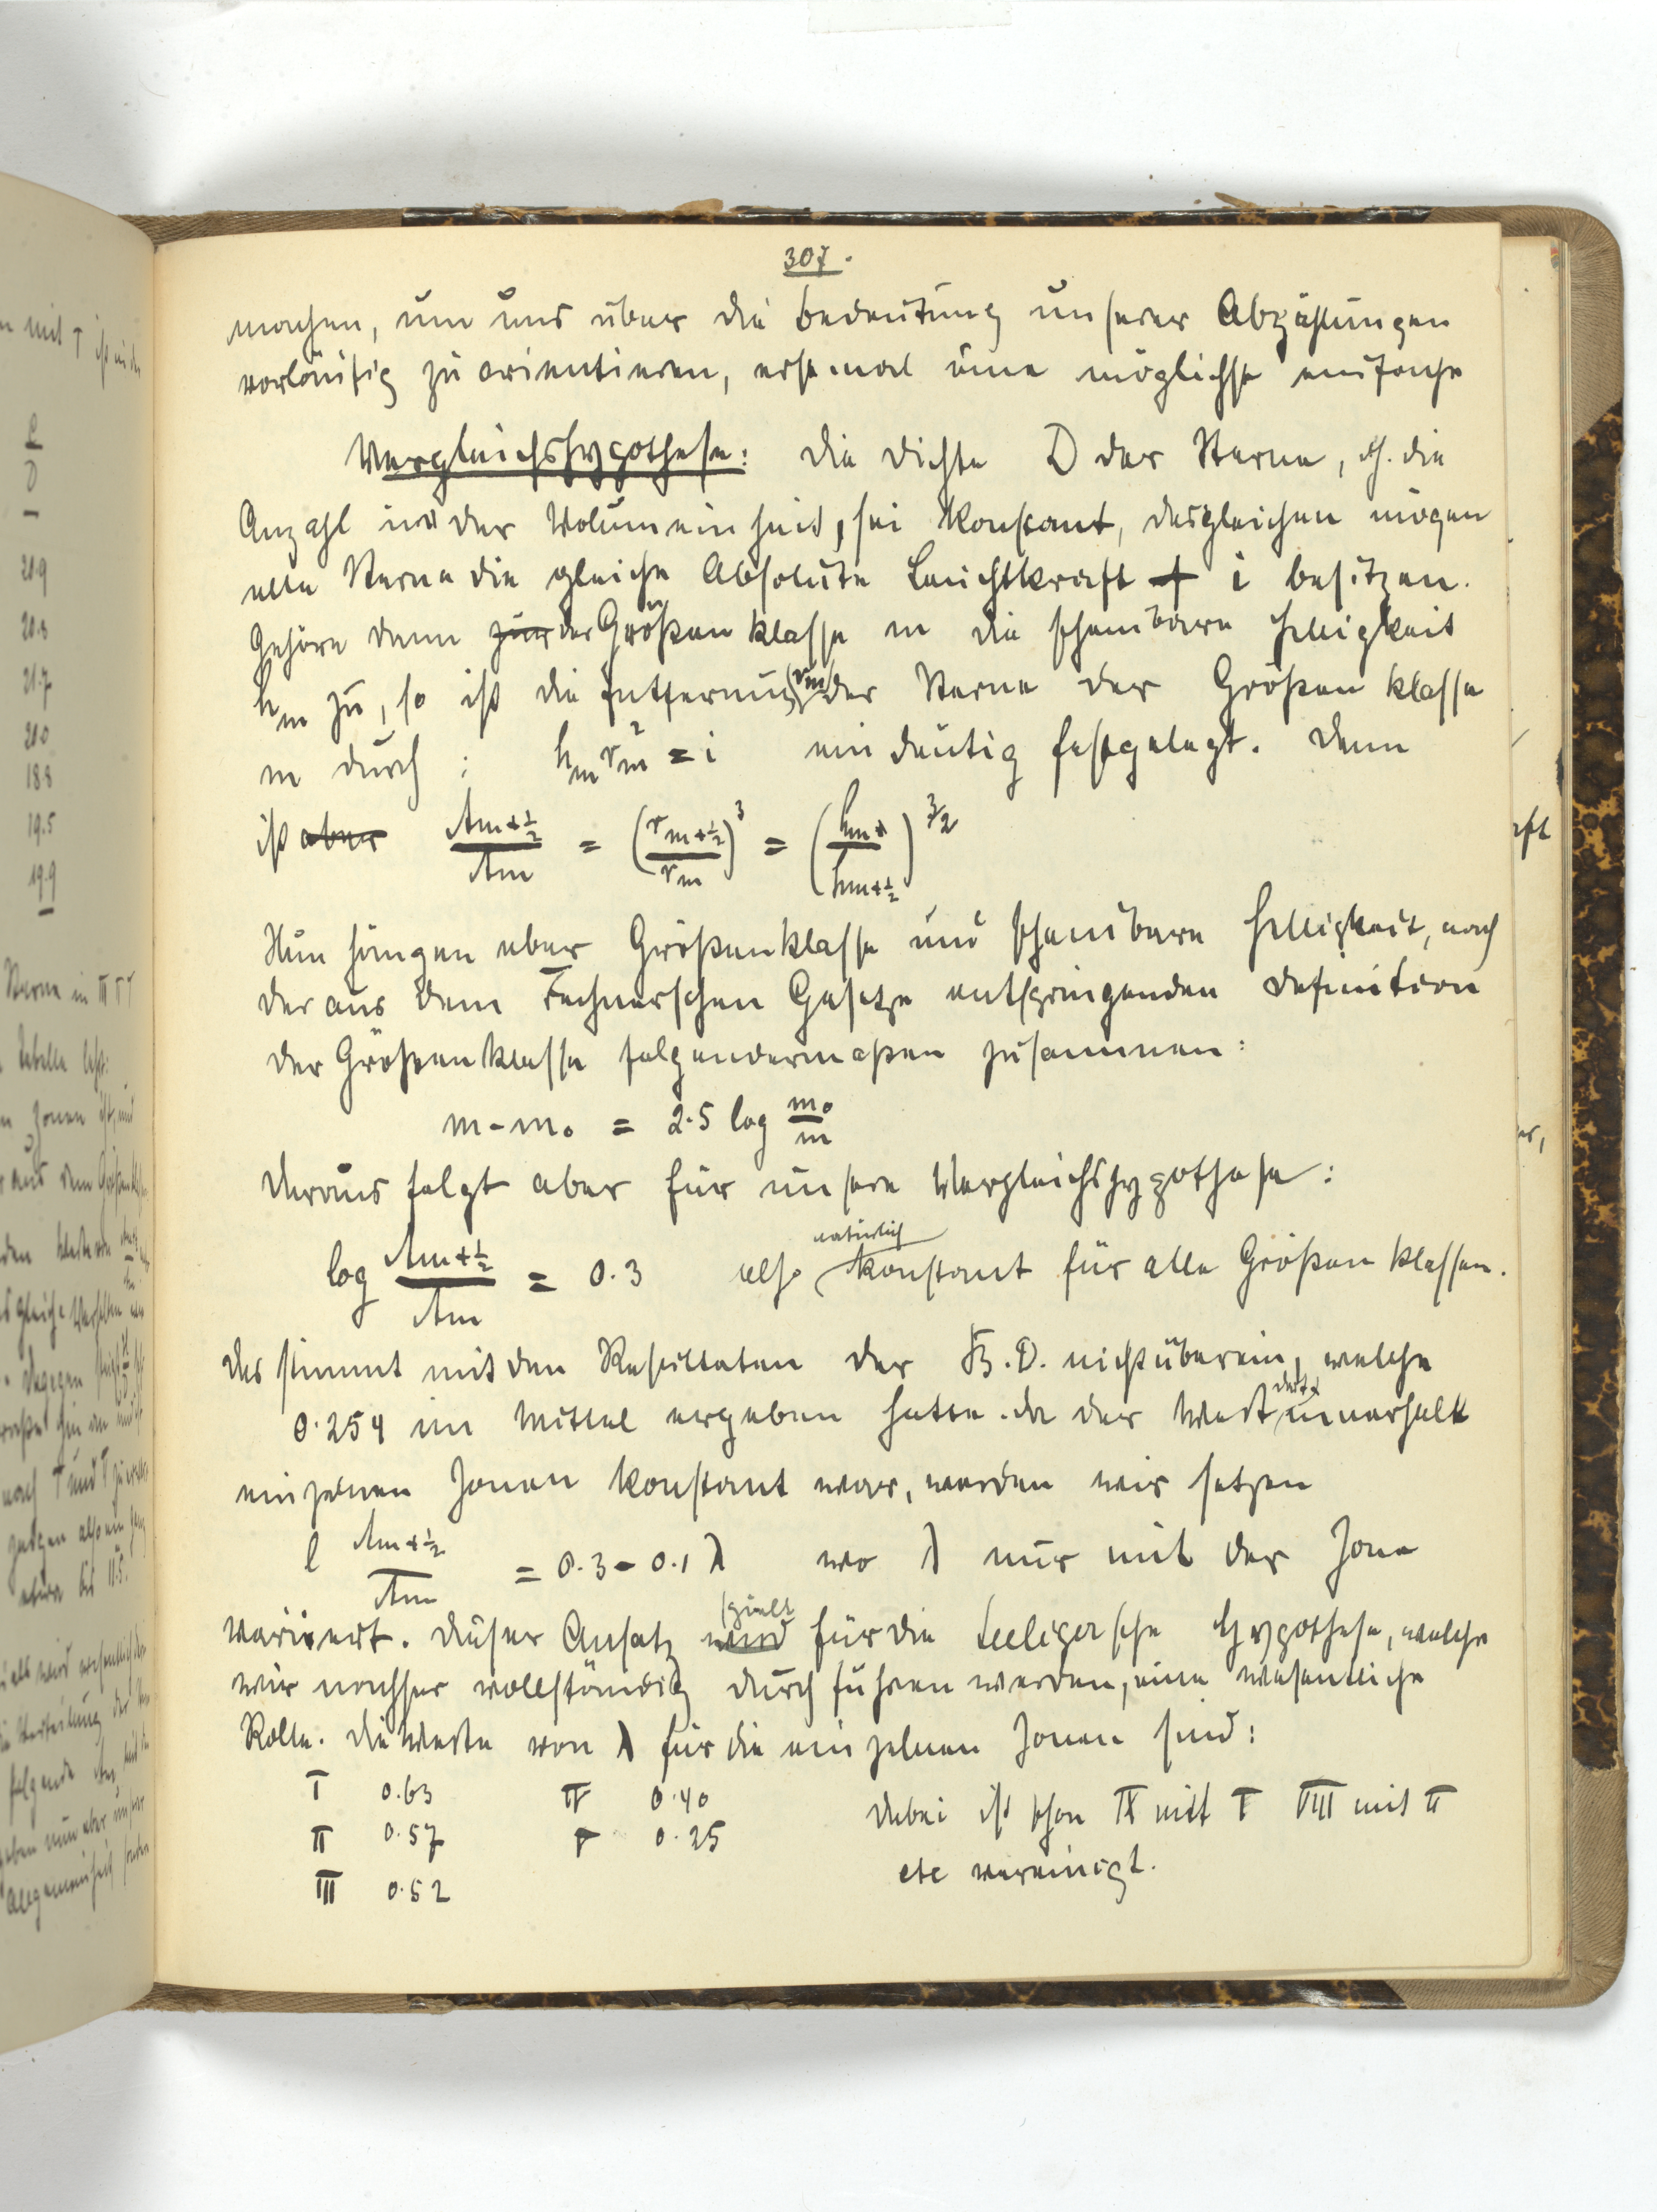 307.
machen, um uns über die Bedeutung unserer Abzählungen
vorläufig zu orientieren, erst mal eine möglichst einfache
Vergleichshypothese: Die Dichte D der Sterne, d.h. die
Anzahl in der Volumeinheit, sei konstant, desgleichen mögen
alle Sterne die gleiche Absolute Leuchtkraft i besitzen.
Gehöre dann zur der Größenklasse m die scheinbare Helligkeit
hm zu, so ist die Entfernung (rm) der Sterne der Größenklasse
m durch : hm rm² = i eindeutig festgelegt. Dann
ist aber Am+½ / Am = (rm+½ / rm)³ = (hm / hm+½)^3/2
Nun hängen aber Größenklasse und scheinbare Helligkeit, nach
der aus dem Fechnerschen Gesetze entspringenden Definition
der Größenklasse folgendermaßen zusammen:
m - m₀ = 2.5 log m₀/m
Daraus folgt aber für unsere Vergleichshypothese:
log Am+½ / Am = 0.3 also natürlich konstant für alle Größenklassen.
Das stimmt mit den Resultaten der B.D. nicht überein, welche
0.254 im Mittel ergeben hatte. Da der Wert dort innerhalb
einzelnen Zonen konstant war, werden wir setzen
l Am+½ / Am = 0.3 - 0.1 λ wo λ nur mit der Zone
variiert. Dieser Ansatz wird spielt für die Seeligersche Hypothese, welche
wir nachher vollständig durchführen werden, eine wesentliche
Rolle. Die Werte von λ für die einzelnen Zonen sind:
I 0.63 IV 0.40 Dabei ist schon IX mit I VIII mit II
II 0.57 V 0.25
etc vereinigt.
III 0.52